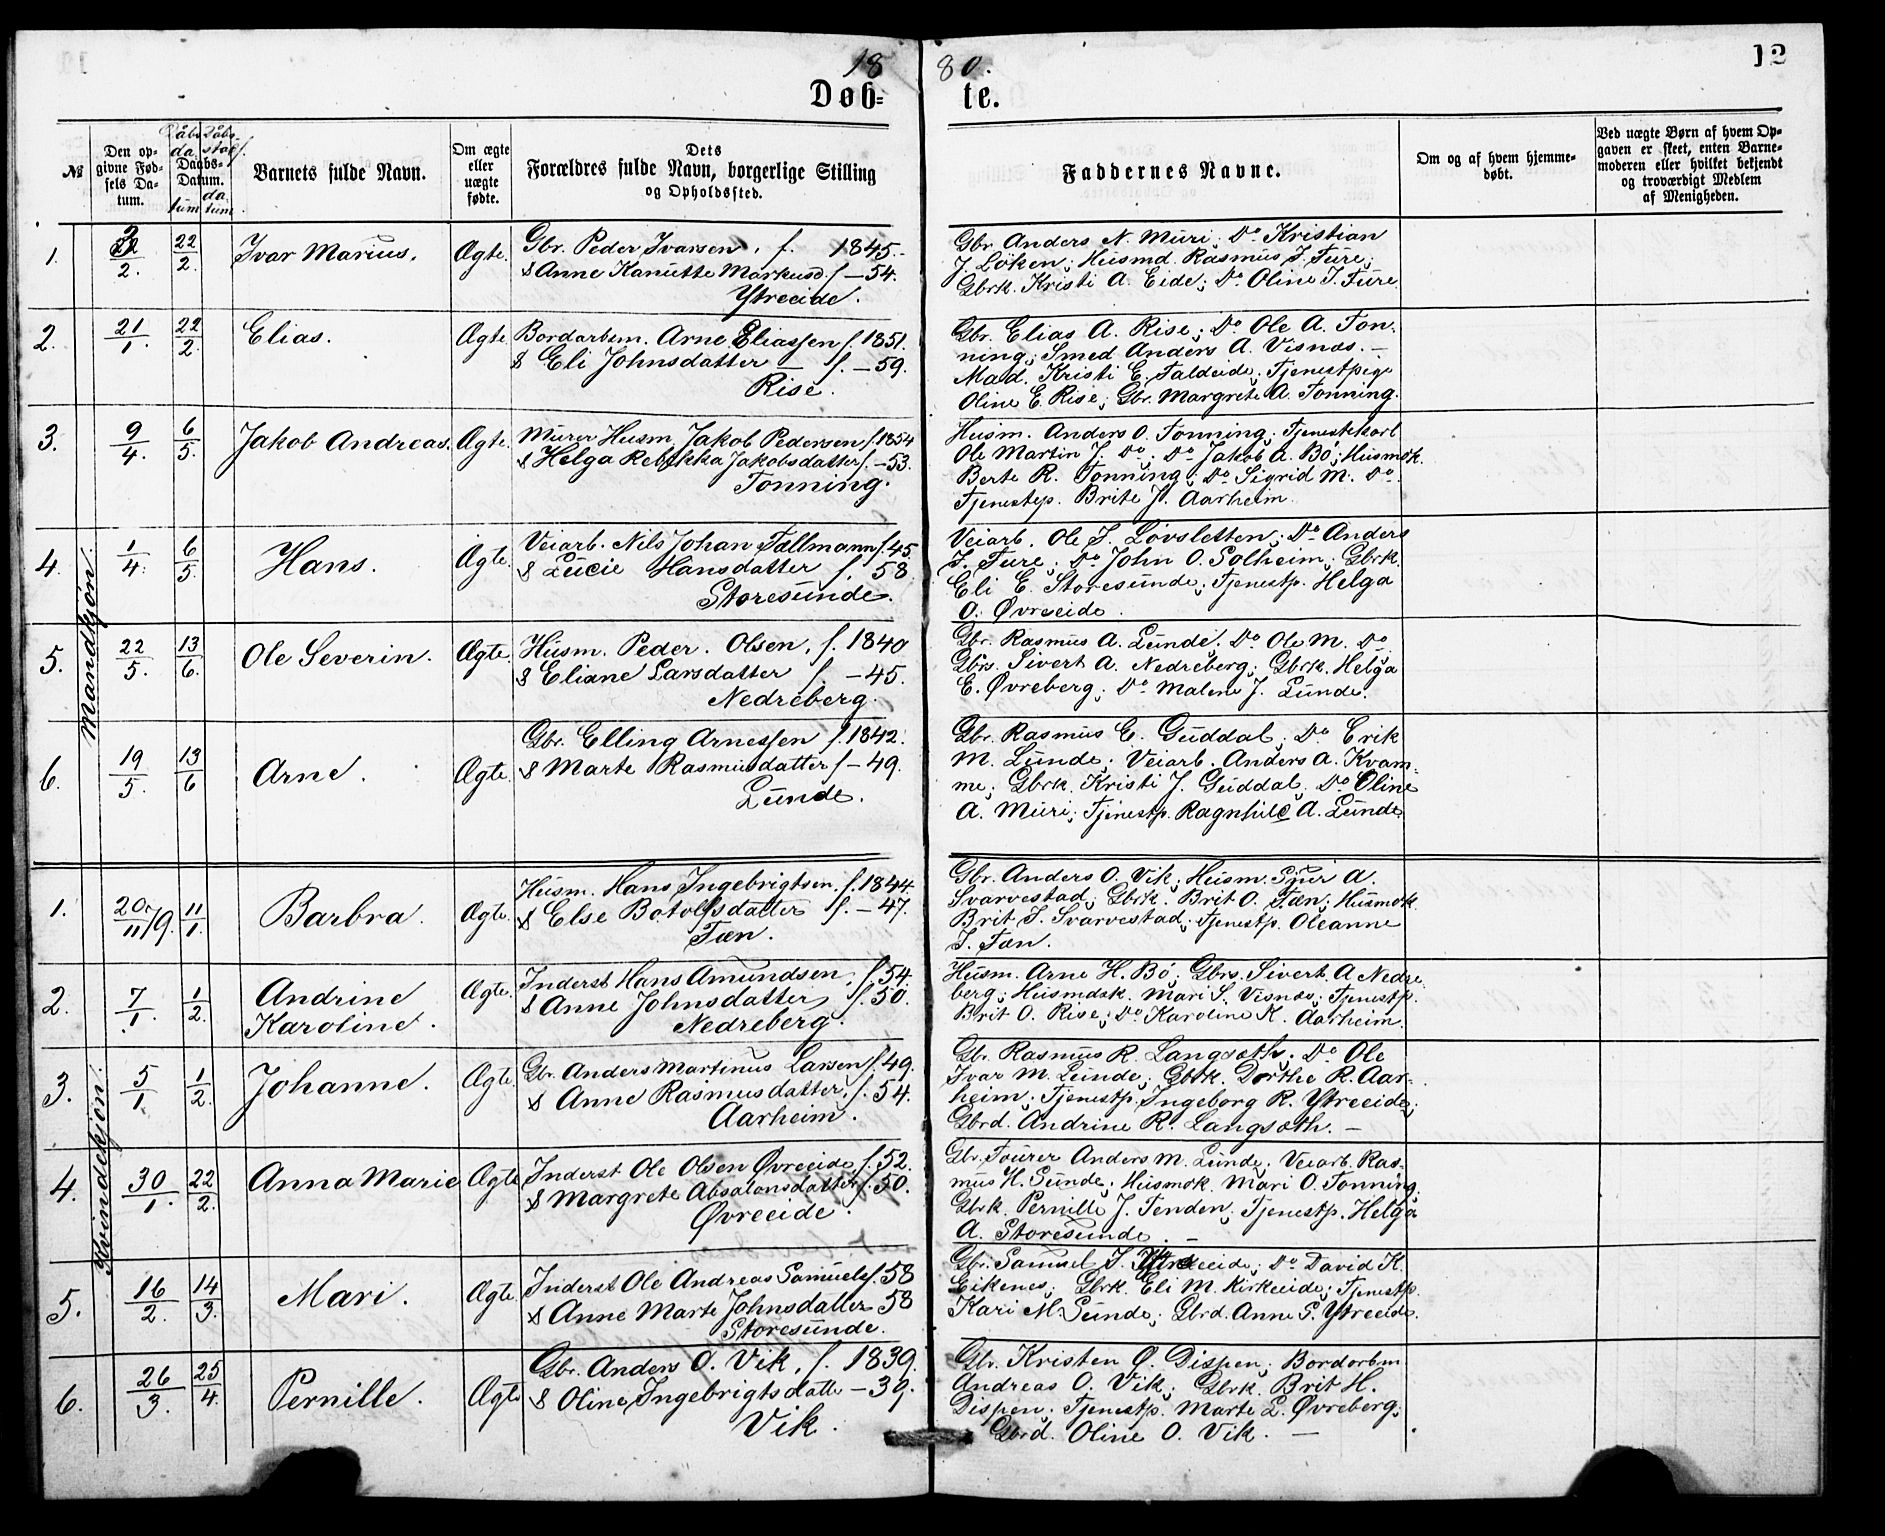 1880.
12
Døbte.
№
Den opgivne Fødsels Datum.
Daabs-Datum.
Dåbsdatum
Barnets fulde Navn.
Om ægte eller uægte fødte.
Dets Forældres fulde Navn, borgerlige Stilling og Opholdssted.
Faddernes Navne.
Om og af hvem hjemmedøbt.
Ved uægte Børn af hvem Opgaven er skeet, enten Barnemoderen eller hvilket bekjendt og troværdigt Medlem af Menigheden.
Mandkjøn.
1. 2/2. 22/2. Ivar Marius. Ægte.
Gbr. Peder Ivarsen, f. 1845.
& Anne Kanutte Markusd. f. – 54.
Ytreeide.
Gbr Anders N. Muri; Do Kristian
J. Løken; Husmd. Rasmus J. Fure;
Gbrk. Kristi A. Eide; Do Oline J. Fure
2. 21/1. 22/2. Elias. Ægte.
Bordarbm. Arne Eliassen f. 1851.
& Eli Johnsdatter – f. – 59.
Rise.
Gbr. Elias A. Rise; Do Ole A. Ton-
ning; Smed Anders A. Visnæs. –
Mad. Kristi E. Faldeide; Tjenestpige
Oline E. Rise; Gbr. Margrete A. Tonning.
3. 9/4. 6/5. Jakob Andreas. Ægte.
Murer Husm. Jakob Pedersen f. 1854
& Helga Rebekka Jakobsdatter f. – 53.
Tonning.
Husm. Anders O. Tonning; Tjenestkarl
Ole Martin J. Do; Do Jakob A. Bø; Husmdk.
Berte R. Tonning; Do Sigrid M. Do
Tjenestep. Brite J. Aarheim.
4. 1/4. 6/5. Hans. Ægte.
Veiarb. Nils Johan Tallmann f. 45.
& Lucie Hansdatter f. 58
Storesunde.
Veiarb. Ole J. Løvsletten; Do Anders
J. Fure; Do John O. Solheim; Gbrk.
Eli E. Storesunde; Tjenestp. Helga
O. Øvreeide.
5. 22/5. 13/6. Ole Severin. Ægte.
Husm. Peder Olsen, f. 1840
& Eliane Larsdatter f. – 45.
Nedreberg.
Gbr. Rasmus A. Lunde; Do Ole M. Do
Gbrs. Sivert A. Nedreberg; Gbrk. Helga
E. Øvreberg; Do Malene J. Lunde.
6. 19/5. 13/6 Arne. Ægte.
Gbr. Elling Arnessen f. 1842.
& Marte Rasmusdatter f – 49.
Lunde.
Gbr. Rasmus E. Guddal; Do Erik
M. Lunde; Veiarb. Anders A. Kvam-
me; Gbrk. Kristi J. Guddal; Do Oline
A. Muri; Tjenestp. Ragnhild A. Lunde
Kvindekjøn.
1. 20/11 79. 11/1. Barbra. Ægte.
Husm. Hans Ingebrigtsen f. 1844.
& Else Botolfsdatter f. – 47.
Tæn.
Gbr. Anders O. Vik; Husm. A.
Svarvestad; Gbrk. Brit O. Tæn; Husmdk
Brit J. Svarvestad; Tjenestp. Oleanne
J. Tæn.
2. 7/1. 1/2. Andrine Karoline. Ægte.
Inderst Hans Amundsen, f. 54.
& Anne Johnsdatter f. 50.
Nedreberg.
Husm. Arne H. Bø; Gbrs. Sivert A Nedre
berg; Husmdsk. Mari S. Visnæs; Tjenestp.
Brit O. Rise; Do Karoline K. Aarheim.
3. 5/1 1/2. Johanne. Ægte.
Gbr. Anders Martinus Larsen f. 49.
& Anne Rasmusdatter, f. 54.
Aarheim.
Gbr. Rasmus R. Langsæth; Do Ole
Ivar M. Lunde; Gbrk. Dorthe R. Aar-
heim; Tjenestp. Ingeborg R. Ytreeide;
Gbrd. Andrine R. Langsæth. –
4. 30/1. 22/2. Anna Marie Ægte
Inderst Ole Olsen Øvreeide, f. 52.
& Margrete Absalonsdatter f. 50.
Øvreeide.
Gbr. Fourer Anders M. Lunde; Veiarb. Ras-
mus H. Sunde; Husmdk. Mari O. Tonning;
Gbrk. Pernille J. Fenden; Tjenestp. Helga
A. Storesunde. –
5. 16/2. 14/3. Mari. Ægte.
Inderst Ole Andreas Samuels f. 58
& Anne Marte Johnsdatter 58
Storesunde.
Gbr. Samuel J. Ytreeide; Do David K.
Eikenes; Gbrk. Eli M. Kirkeeide; Tjenestp.
Kari M. Sunde; Gbrd. Anne S. Ytreeide.
6. 26/3. 25/4. Pernille. Ægte
Gbr. Anders O. Vik, f. 1839.
& Oline Ingebrigtsdatte – 39.
Vik.
Gbr. Kristen O. Dispen; Bordarbm
Andreas O. Vik; Gbrk. Brit H.
Dispen; Tjenestp. Marte L. Øvreberg;
Gbrd. Oline O. Vik. –